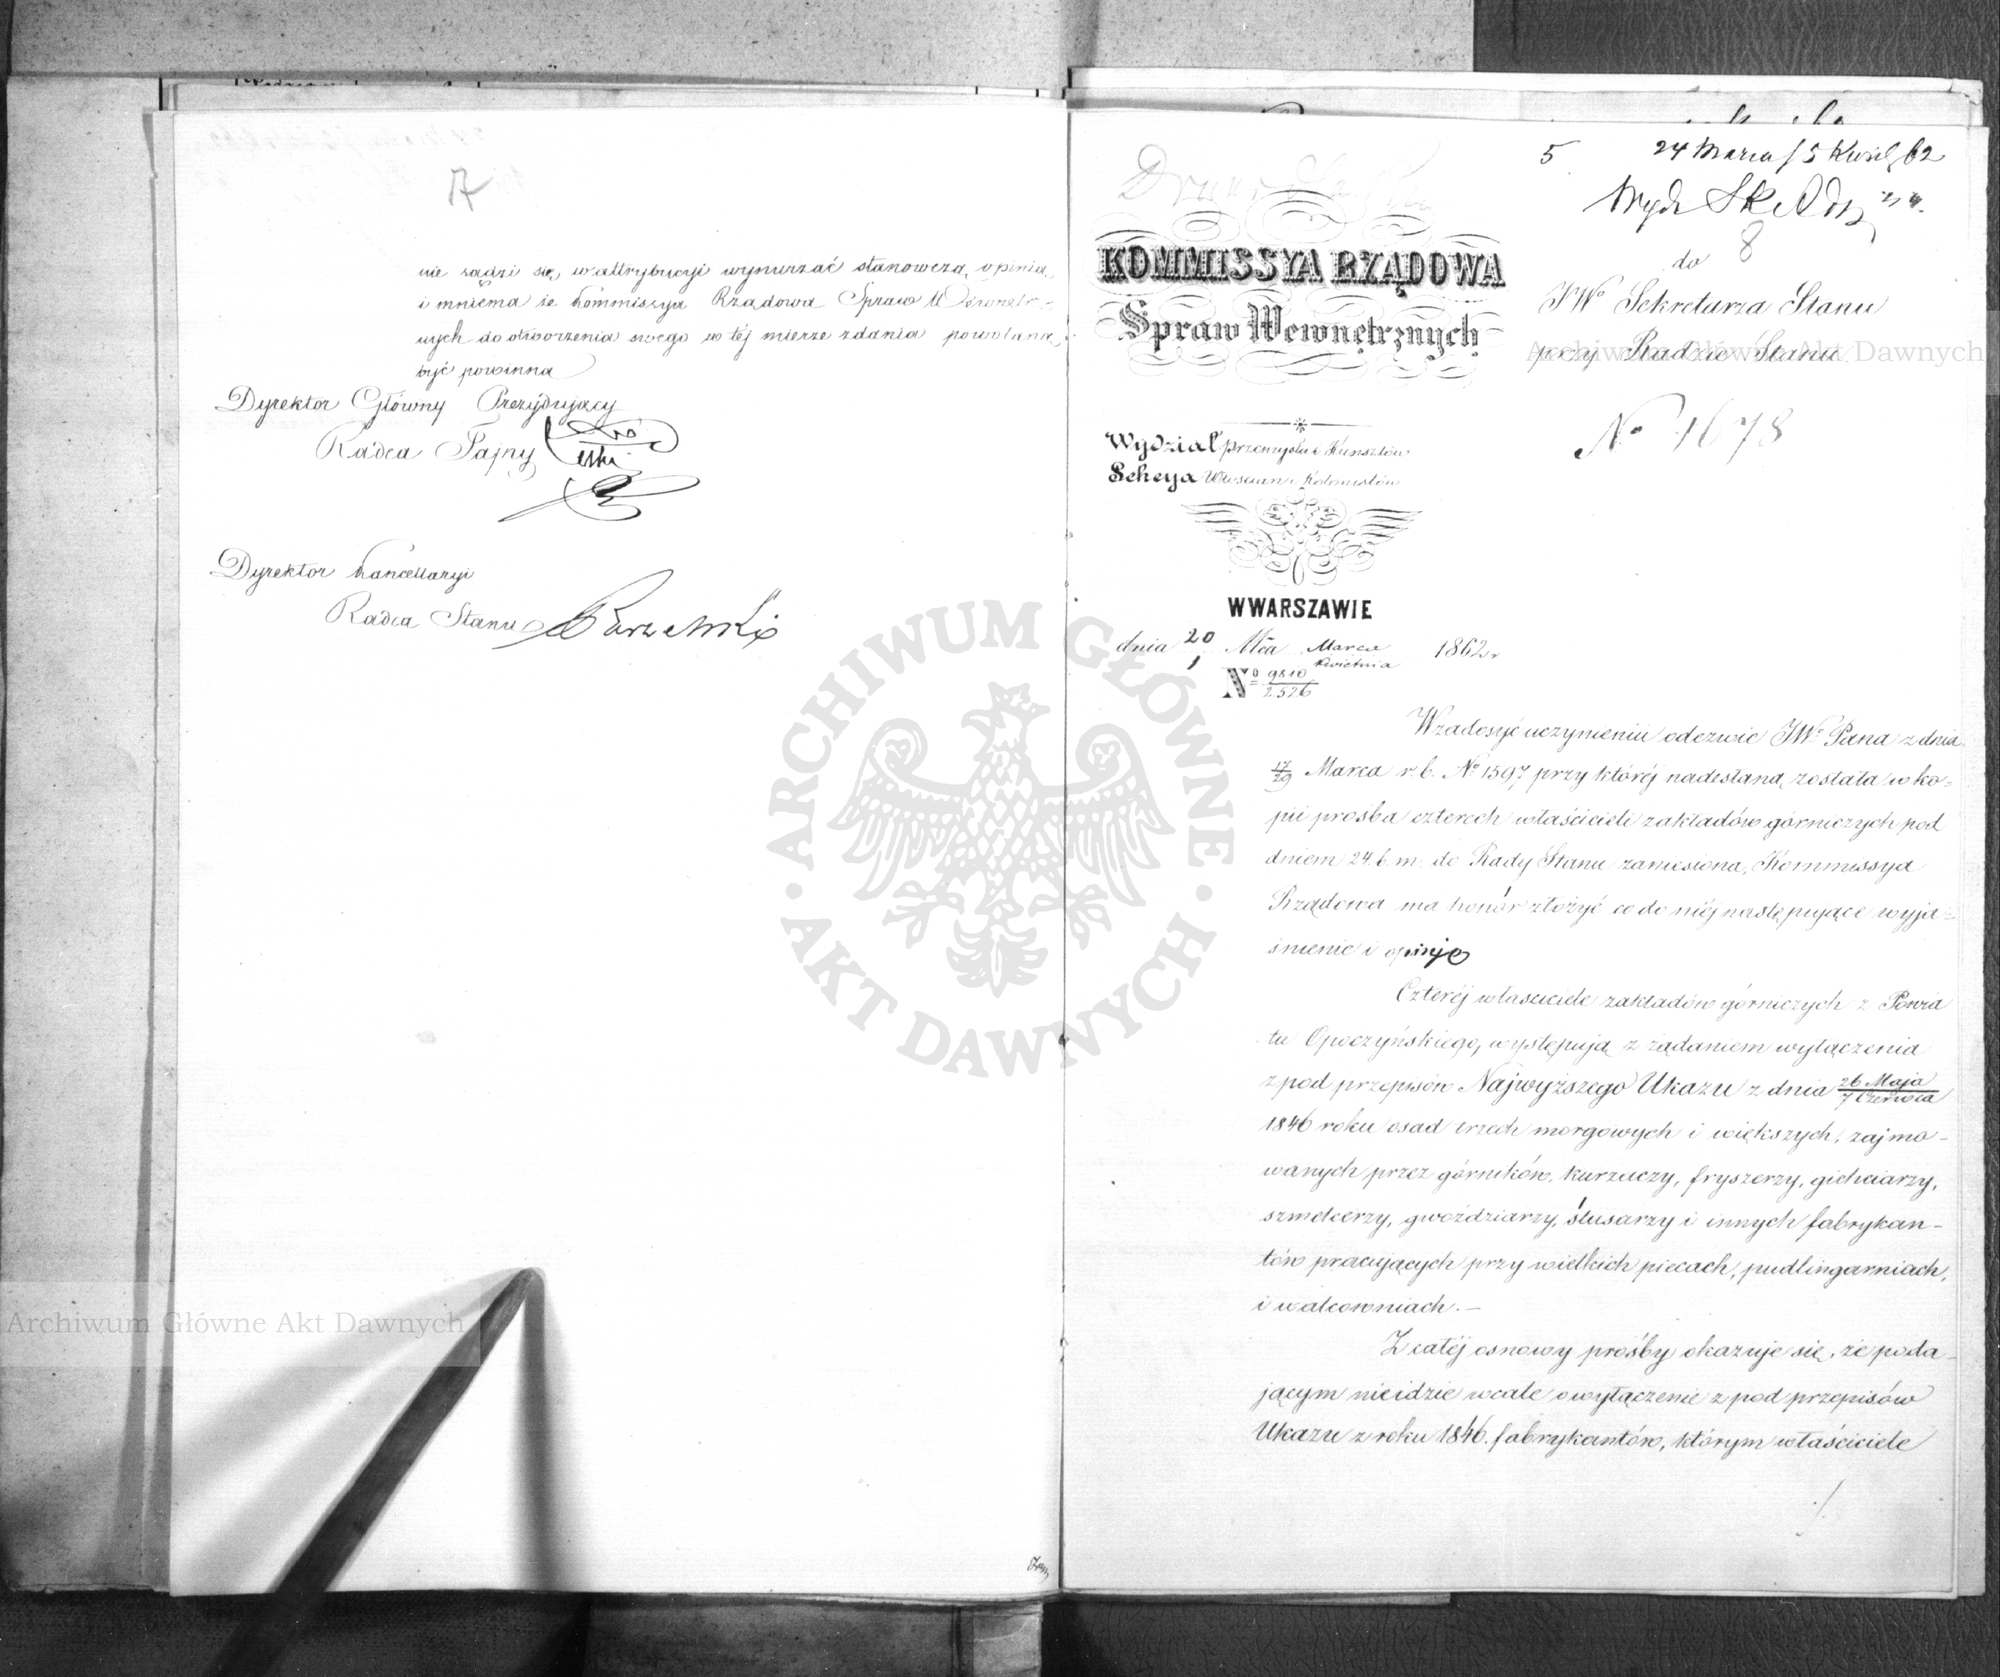 nie sądzi się w attrybucyi wynurzać stanowczą opinią,
i mniema że Kommissya Rządowa Spraw Wewnętrz-
nych do otworzenia swego w téj mierze zdania powołaną
być powinna
Dyrektor Główny Prezydujący
Radca Tajny
Dyrektor Kancellaryi
Radca Stanu
5
24 Marca / 5 Kwiet. 62
8
KOMMISSYA RZĄDOWA
Spraw Wewnętrznych
do
JWo Sekretarza Stanu
przy Radzie Stanu
No 1678
Wydział Przemysłu i Kunsztów
Sekcya Włościan i Kolonistów
W WARSZAWIE
dnia 20/1 Mca Marca/Kwietnia 1862 r
No 9810/2526
Wzadosyć uczynieniu odezwie JWo Pana z dnia
17/29 Marca r. b. No 1597 przy któréj nadesłaną została w ko-
pii prośba czterech właścicieli zakładów górniczych pod
dniem 24 b. m. do Rady Stanu zaniesiona, Kommissya
Rządowa ma honór złożyć co do niéj następujące wyja-
śnienie i opinję
Czteréj właściciele zakładów górniczych z Powia
tu Opoczyńskiego, występują z żądaniem wyłączenia
z pod przepisów Najwyższego Ukazu z dnia 26 Maja/7 Czerwca
1846 roku osad trzech morgowych i większych, zajmo-
wanych przez górników, kurzaczy, fryszerzy, gichciarzy,
szmelcerzy, gwoździarzy, ślusarzy i innych fabrykan-
tów pracujących przy wielkich piecach, pudlingarniach,
i walcowniach. –
Z całéj osnowy prośby okazuje się, że poda-
jącym nieidzie wcale o wyłączenie z pod przepisów
Ukazu z roku 1846. fabrykantów, którym właściciele
./.
ARCHIWUM GŁÓWNE · AKT DAWNYCH ·
Archiwum Główne Akt Dawnych
Archiwum Główne Akt Dawnych